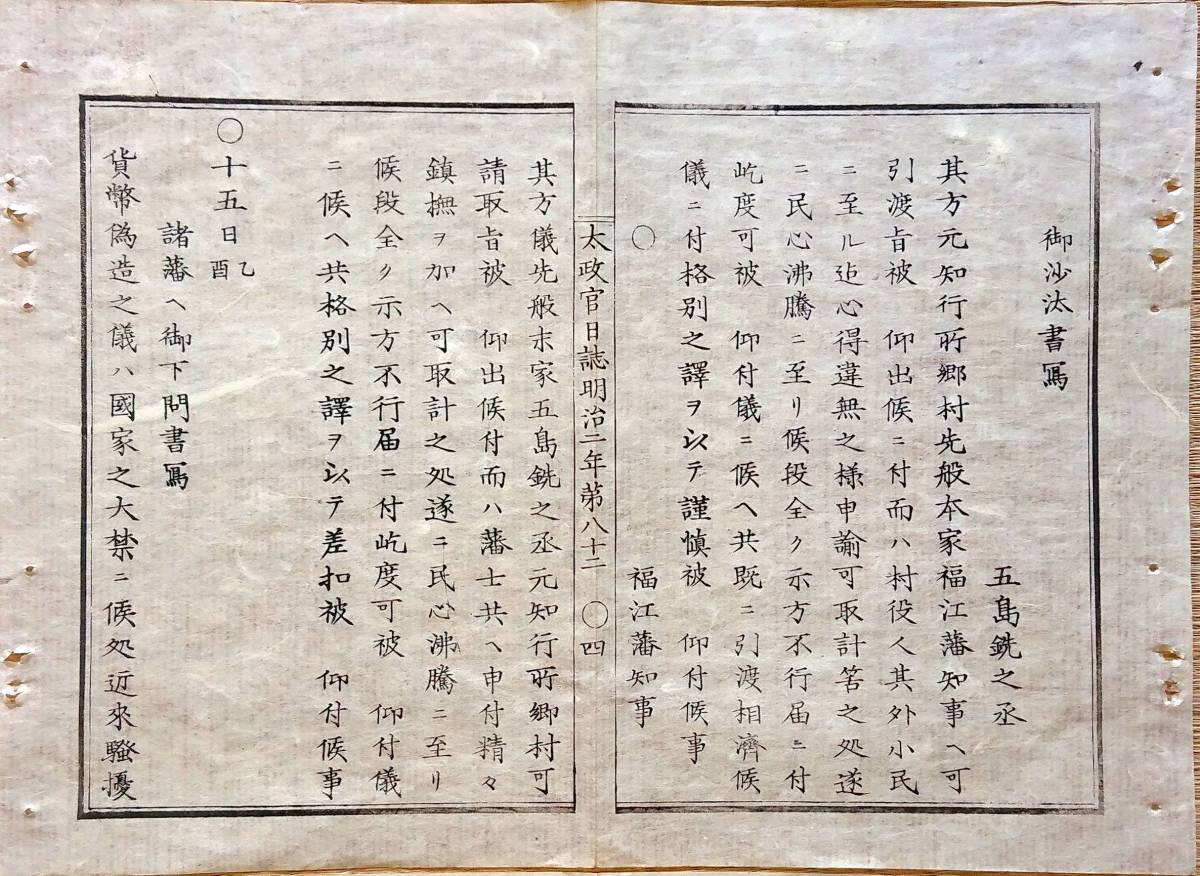 御沙汰書寫
五島銑之丞
其方元知行所郷村先般本家福江藩知事ヘ可
引渡旨被　仰出候ニ付而ハ村役人其外小民
ニ至ル迠心得違無之様申諭可取計筈之処遂
ニ民心沸騰ニ至リ候段全ク示方不行届ニ付
屹度可被　仰付儀ニ候ヘ共既ニ引渡相濟候
儀ニ付格別之譯ヲ以テ謹慎被　仰付候事
〇　福江藩知事
太政官日誌明治二年第八十二　〇四
其方儀先般末家五島銑之丞元知行所郷村可
請取旨被　仰出候付而ハ藩士共ヘ申付精々
鎮撫ヲ加ヘ可取計之処遂ニ民心沸騰ニ至リ
候段全ク示方不行届ニ付屹度可被　仰付儀
ニ候ヘ共格別之譯ヲ以テ差扣被　仰付候事
〇十五日乙酉
諸藩ヘ御下問書寫
貨幣偽造之儀ハ國家之大禁ニ候処近來騷擾